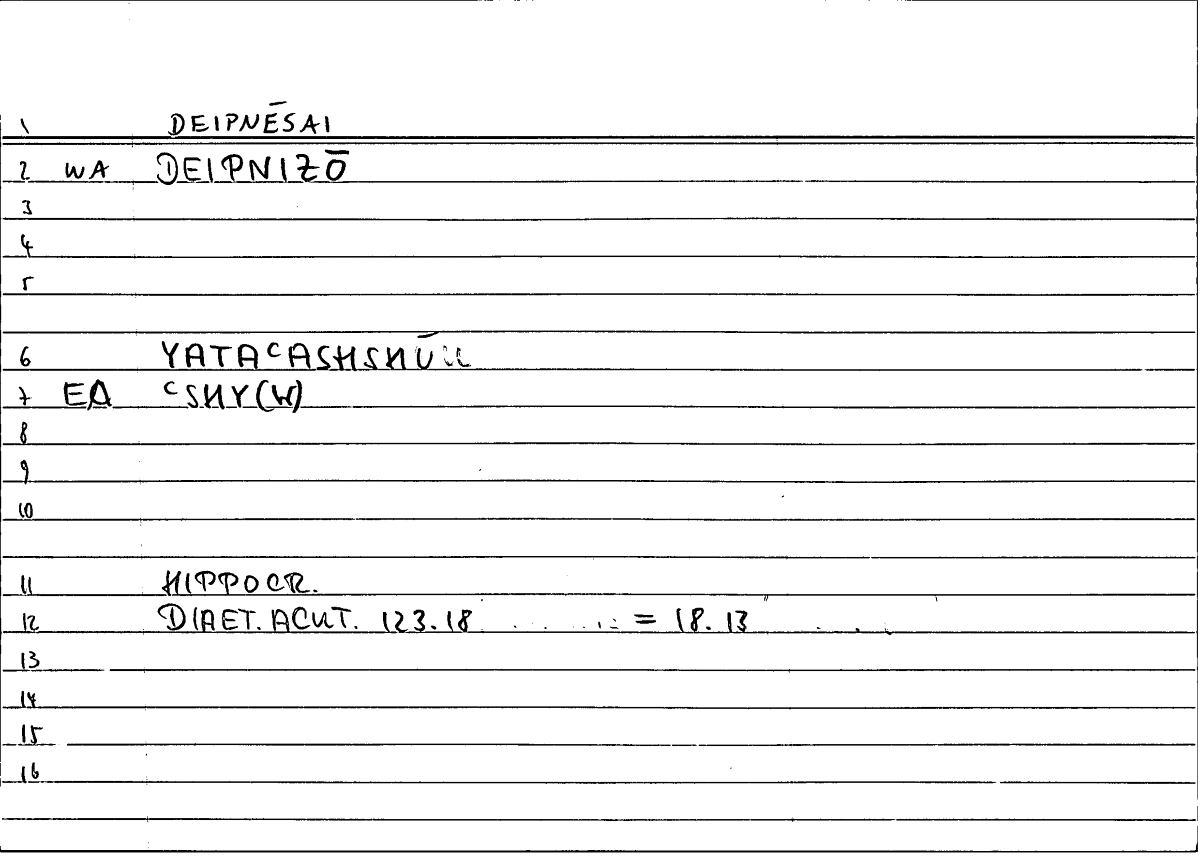 1 DEIPNĒSAI
2 WA DEIPNIZŌ
3
4
5
6
7 EA ᶜSHY(W)
8
9
10
11 HIPPOCR.
12 DIAET. ACUT. 123.18 = 18.13
13
14
15
16